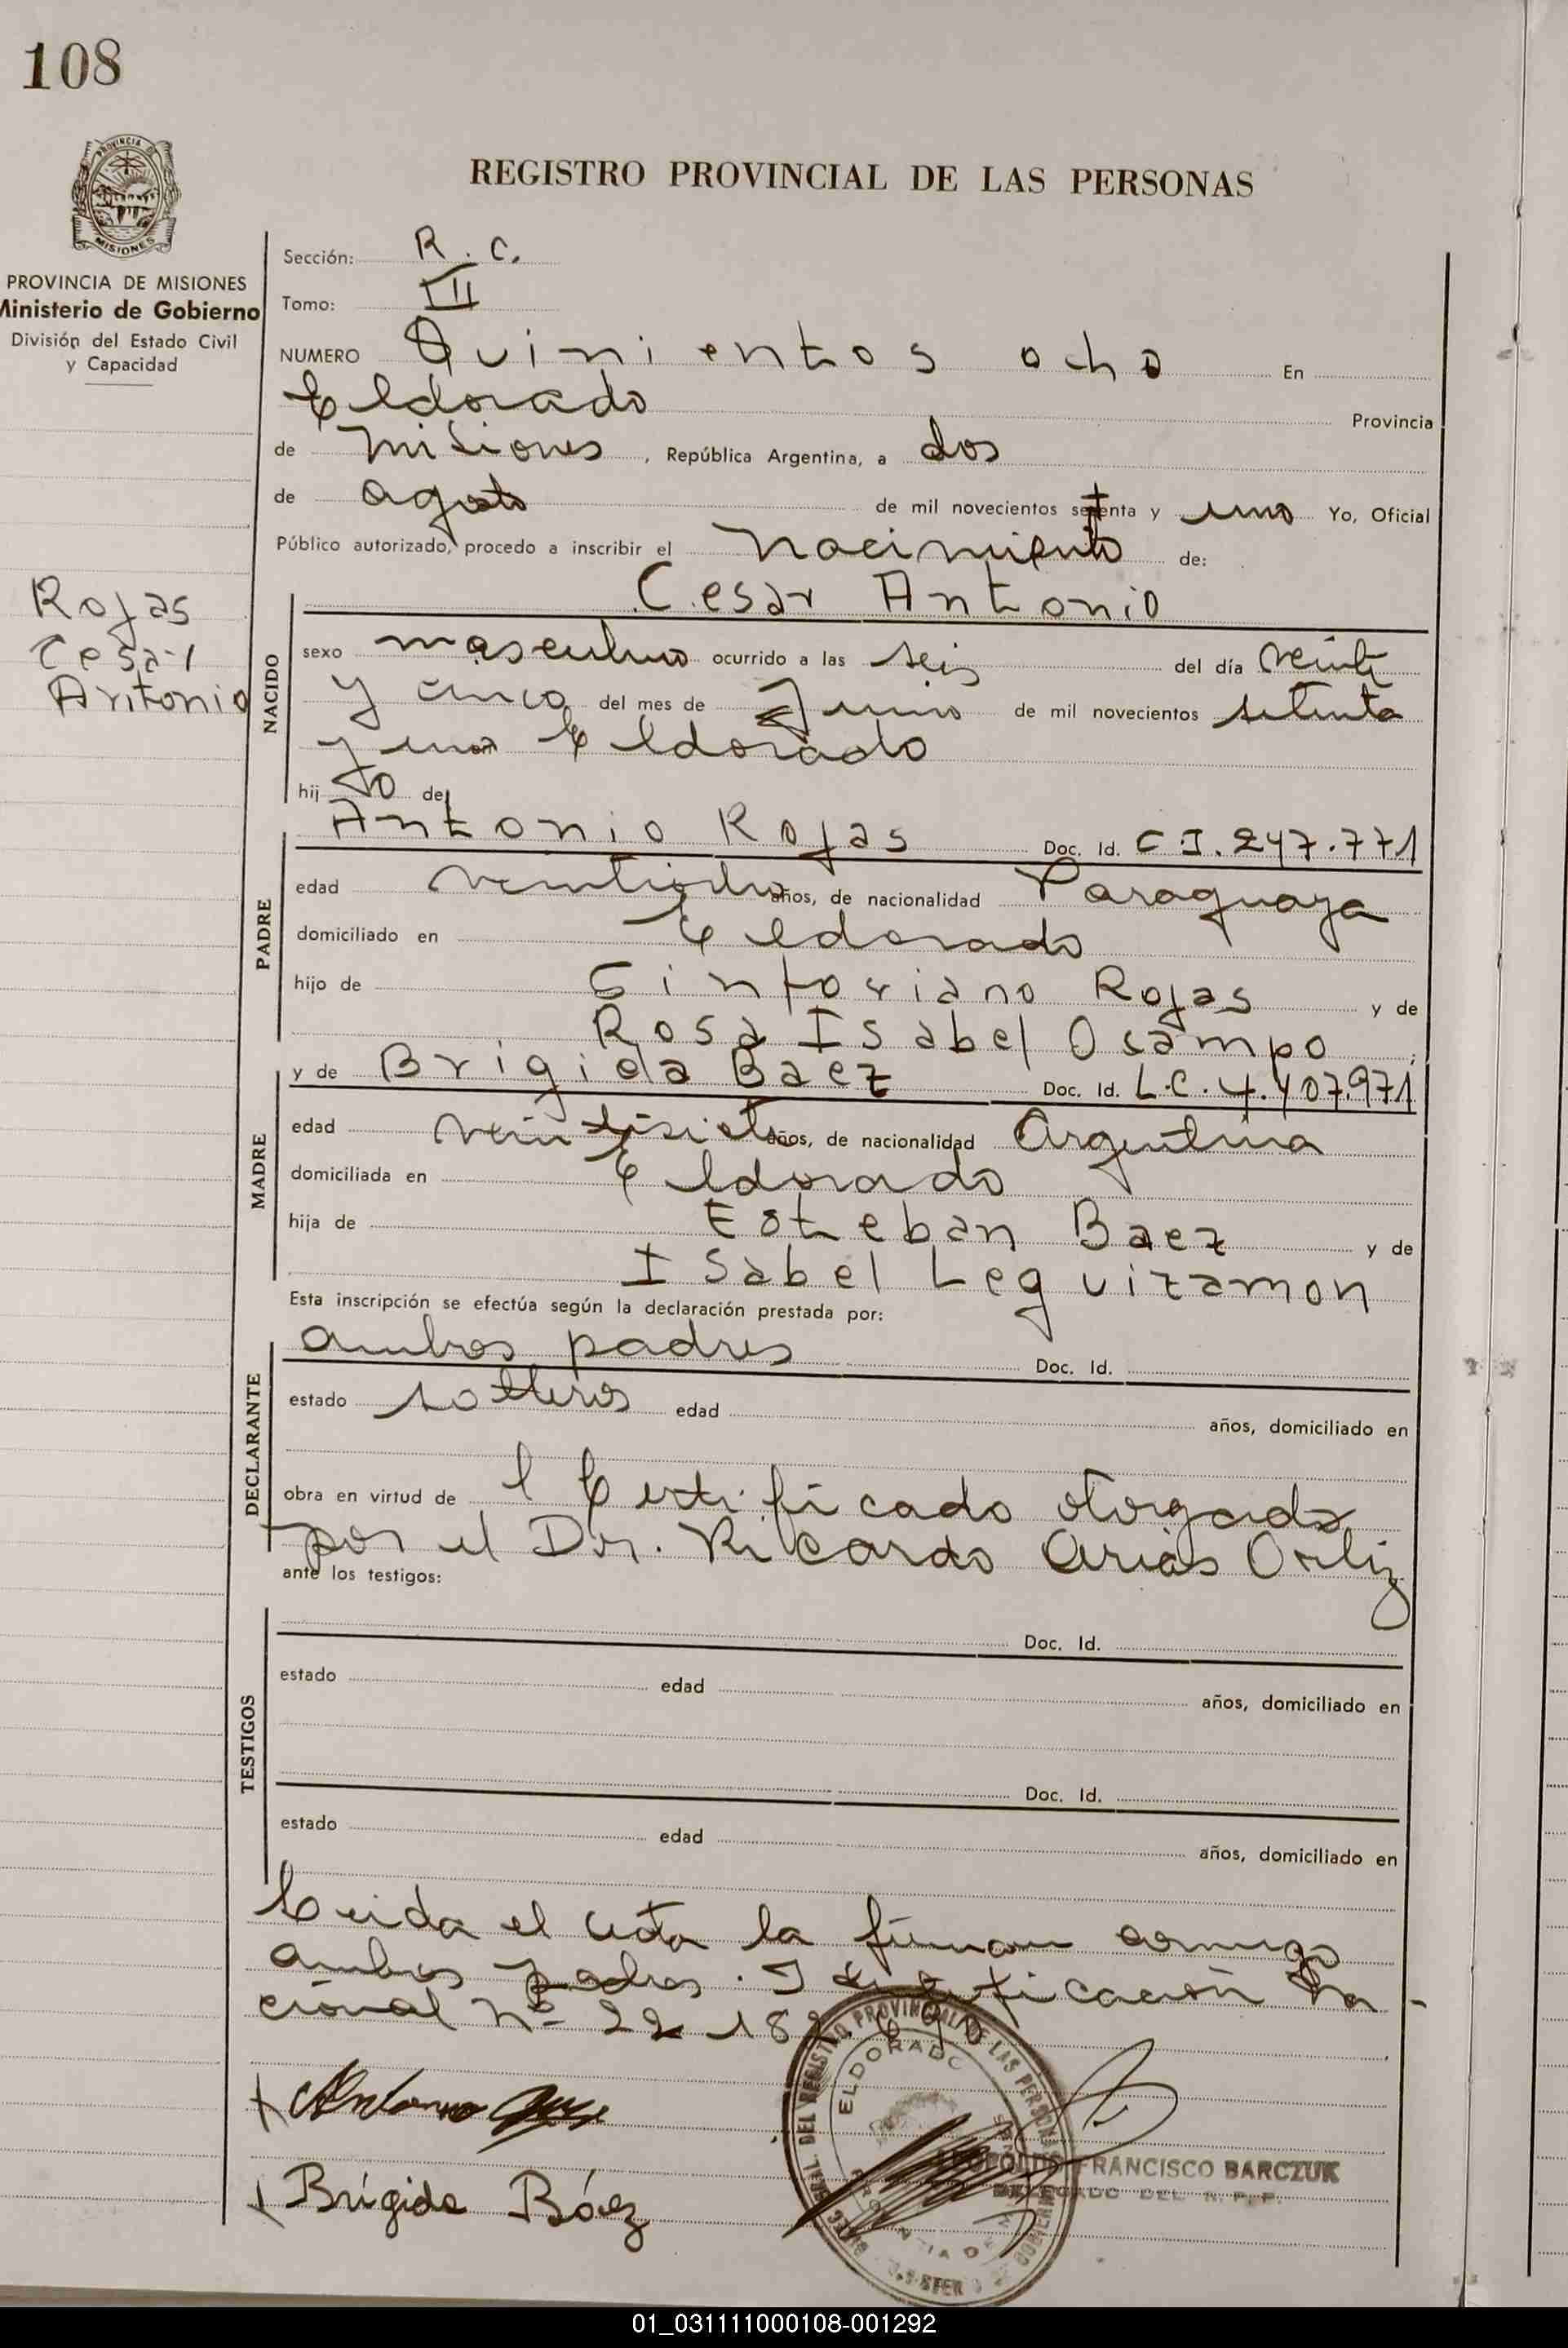 108
PROVINCIA DE
MISIONES
REGISTRO PROVINCIAL DE LAS PERSONAS
PROVINCIA DE MISIONES
Ministerio de Gobierno
División del Estado Civil
y Capacidad
Sección: R. C.
Tomo: III
NUMERO Quinientos ocho En
Eldorado Provincia
de Misiones, República Argentina, a dos
de agosto de mil novecientos setenta y uno Yo, Oficial
Público autorizado, procedo a inscribir el nacimiento de:
Cesar Antonio
Rojas
Cesar
Antonio
NACIDO
sexo masculino ocurrido a las seis del día veinti
y cinco del mes de Junio de mil novecientos setenta
y uno Eldorado
hij jo de
PADRE
Antonio Rojas Doc. Id. C I. 247.771
edad veintiocho años, de nacionalidad Paraguaya
domiciliado en Eldorado
hijo de Sinforiano Rojas y de
Rosa Isabel Ocampo ;
MADRE
y de Brigida Baez Doc. Id. L.C. 4.407.971
edad veintisiete años, de nacionalidad Argentina
domiciliada en Eldorado
hija de Esteban Baez y de
Isabel Leguizamon
Esta inscripción se efectúa según la declaración prestada por:
DECLARANTE
ambos padres Doc. Id.
estado solteros edad años, domiciliado en
obra en virtud de l Certificado otorgado
por el Dr. Ricardo Arias Ortiz
ante los testigos:
TESTIGOS
Doc. Id.
estado edad años, domiciliado en
Doc. Id.
estado edad años, domiciliado en
Leida el acta la firman conmigo
ambos padres. Identificación Na-
cional Nº 22 18
DEL REGISTRO PROVINCIAL DE LAS PERSONAS
ELDORADO
Antonio
FRANCISCO BARCZUK
DELEGADO DEL R. P. P.
Brígida Báez
01_031111000108-001292